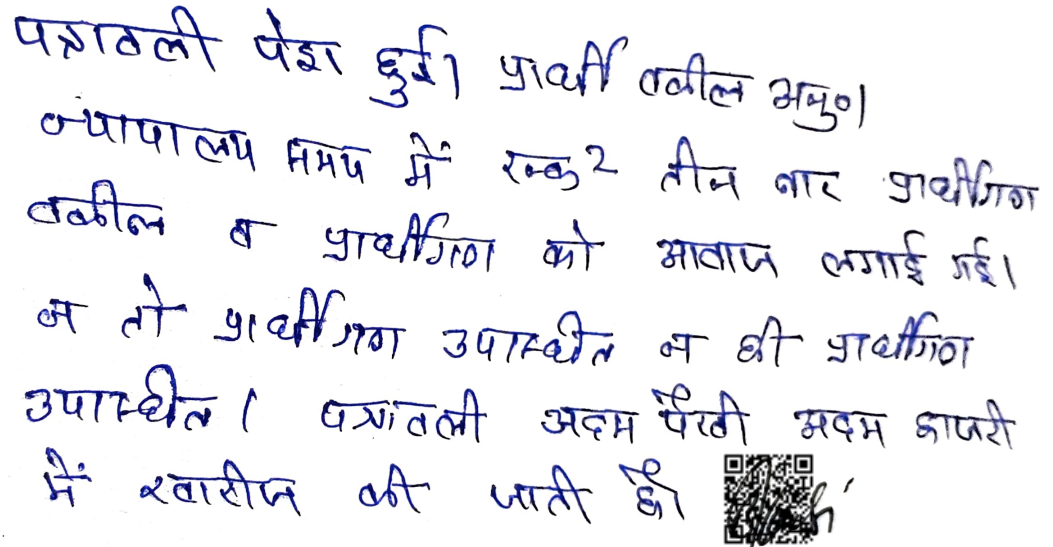 पत्रावली पेश हुई। प्रार्थी वकील अनु०।
न्यायालय समय में रूक2 तीन बार प्रार्थीगण
वकील व प्रार्थीगण को आवाज लगाई गई।
न तो प्रार्थीगण उपास्थीत न ही प्रार्थीगण
उपास्थीत। पत्रावली अदम पैरवी अदम हाजरी
में खारीज की जाती है।